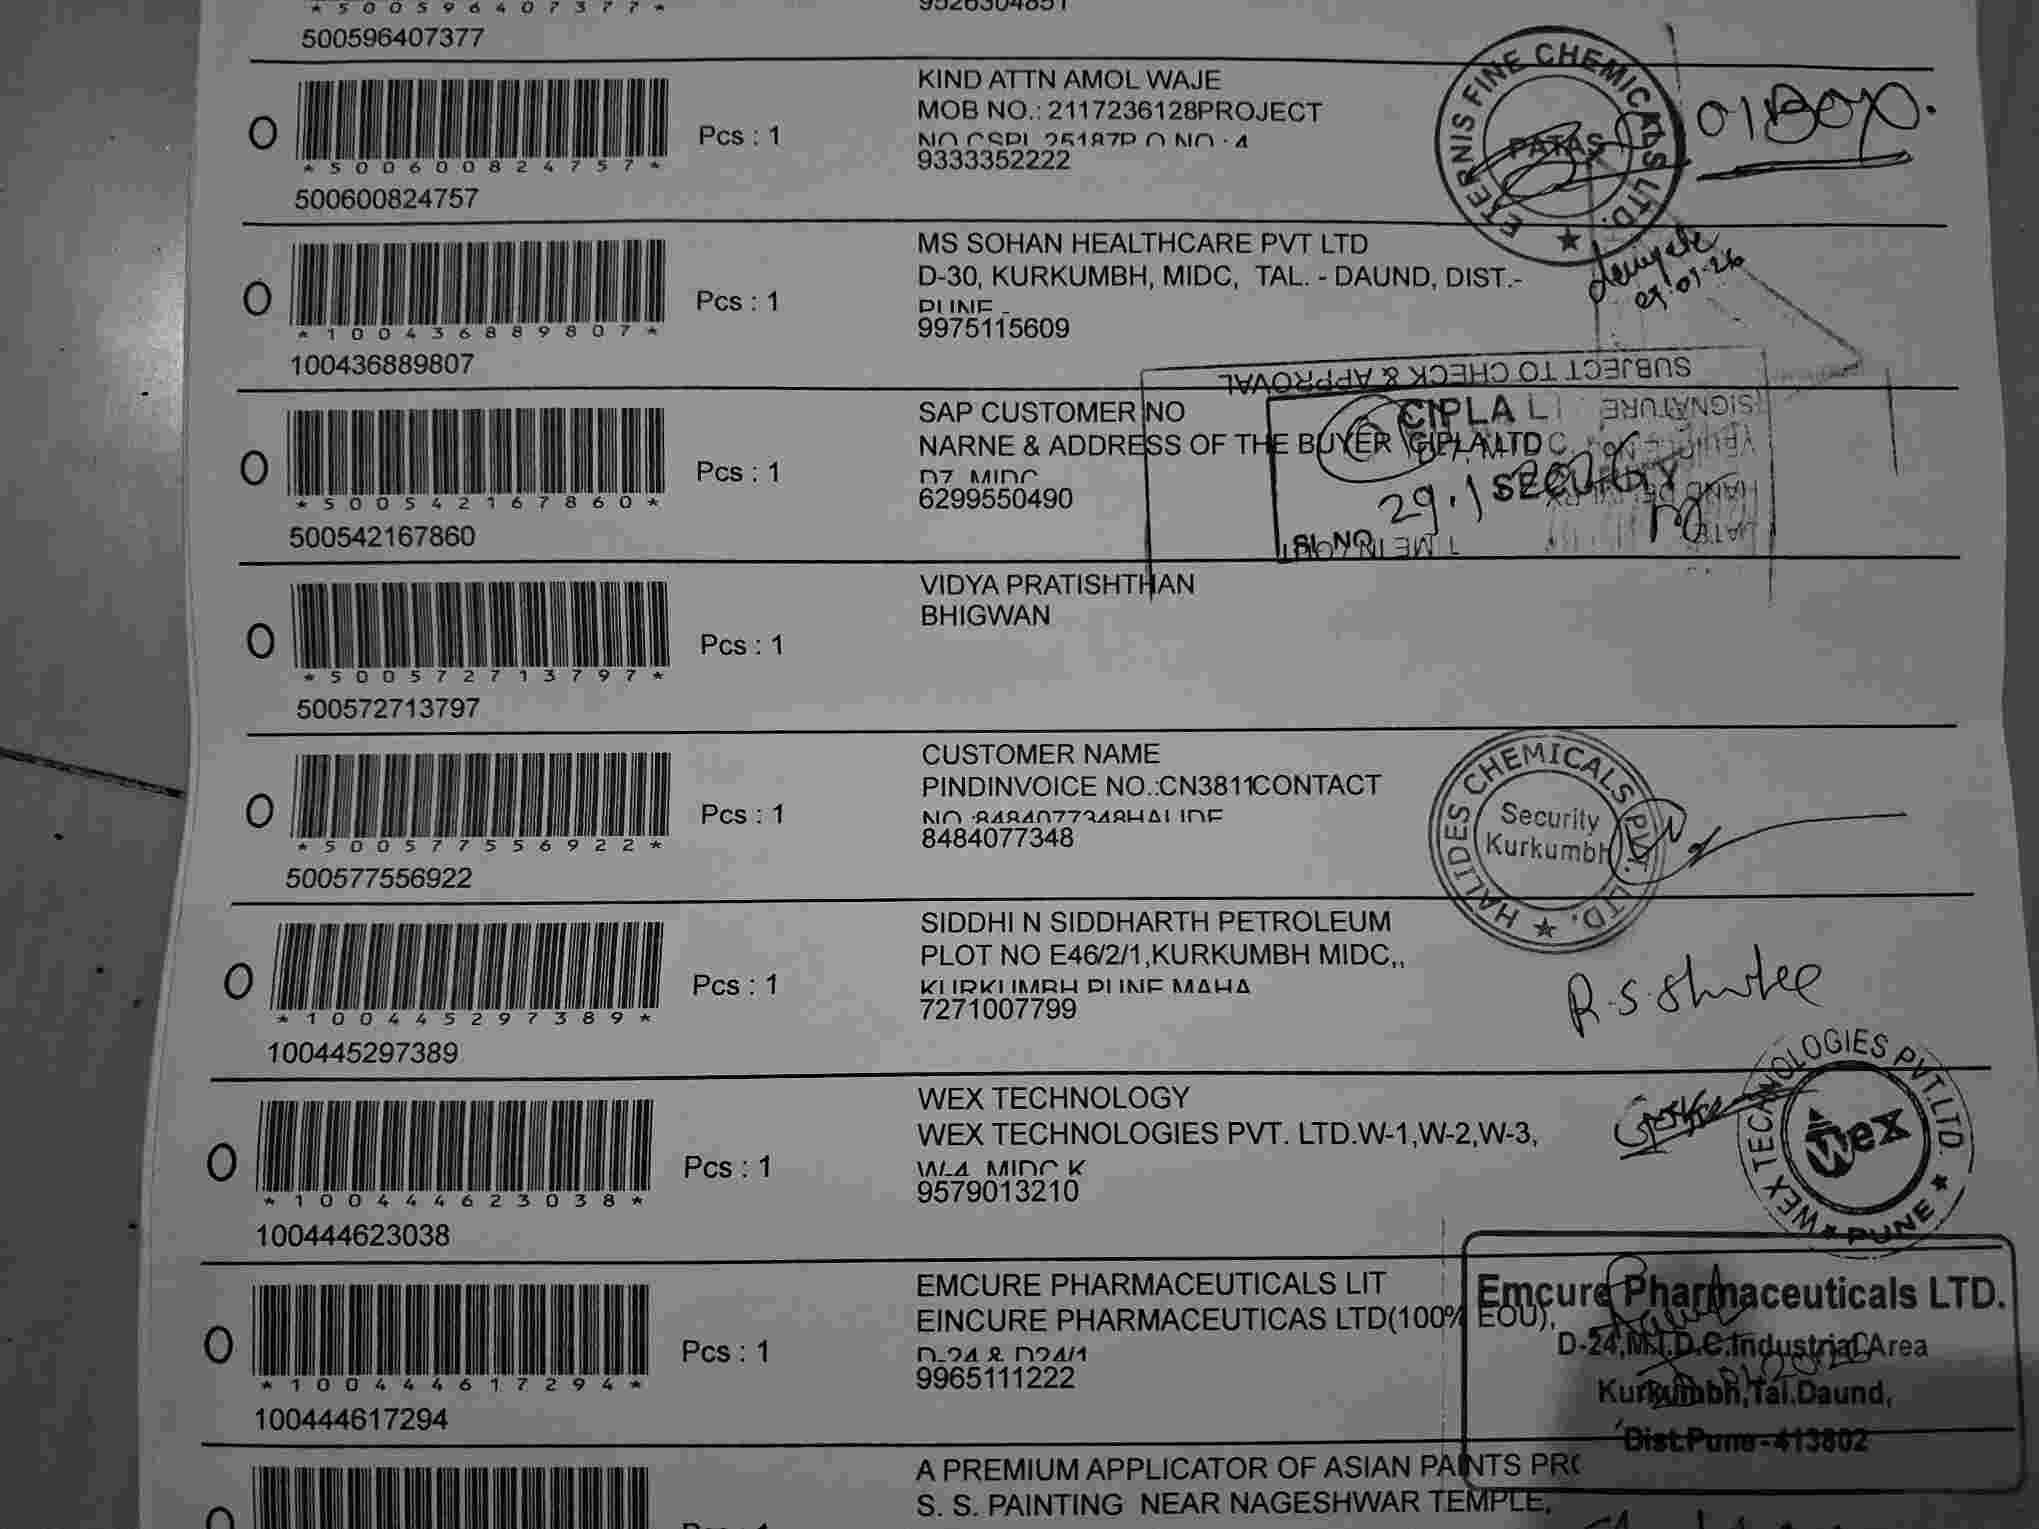 *500596407377*
9526304851
500596407377
KIND ATTN AMOL WAJE
MOB NO.: 2117236128PROJECT
NO.CSPL 25187P.O.NO.: 4
9333352222
Pcs : 1
*500600824757*
500600824757
ETERNIS FINE CHEMICALS LTD.
PATAS
01 BOX.
MS SOHAN HEALTHCARE PVT LTD
D-30, KURKUMBH, MIDC, TAL. - DAUND, DIST.-
PUNE -
9975115609
Pcs : 1
*100436889807*
100436889807
SUBJECT TO CHECK & APPROVAL
SIGNATURE
SAP CUSTOMER NO
NARNE & ADDRESS OF THE BUYER CIPLA LTD
D7, MIDC
6299550490
Pcs : 1
*500542167860*
500542167860
CIPLA
SECURITY
29.1
SI. NO
VIDYA PRATISHTHAN
BHIGWAN
Pcs : 1
*500572713797*
500572713797
CUSTOMER NAME
PINDINVOICE NO.:CN3811CONTACT
NO.:8484077348HALIDE
8484077348
Pcs : 1
*500577556922*
500577556922
HALIDES CHEMICALS PVT. LTD.
Security
Kurkumbh
SIDDHI N SIDDHARTH PETROLEUM
PLOT NO E46/2/1,KURKUMBH MIDC,,
KURKUMBH PUNE MAHA
7271007799
Pcs : 1
*100445297389*
100445297389
WEX TECHNOLOGY
WEX TECHNOLOGIES PVT. LTD.W-1,W-2,W-3,
W-4, MIDC K
9579013210
Pcs : 1
*100444623038*
100444623038
WEX TECHNOLOGIES PVT. LTD.
Wex
PUNE
EMCURE PHARMACEUTICALS LIT
EINCURE PHARMACEUTICAS LTD(100% EOU),
D-24 & D24/1
9965111222
Pcs : 1
*100444617294*
100444617294
Emcure Pharmaceuticals LTD.
D-24,M.I.D.C.Industrial Area
Kurkumbh,Tal.Daund,
Dist.Pune-413802
A PREMIUM APPLICATOR OF ASIAN PAINTS PRO
S. S. PAINTING NEAR NAGESHWAR TEMPLE,
Pcs : 1